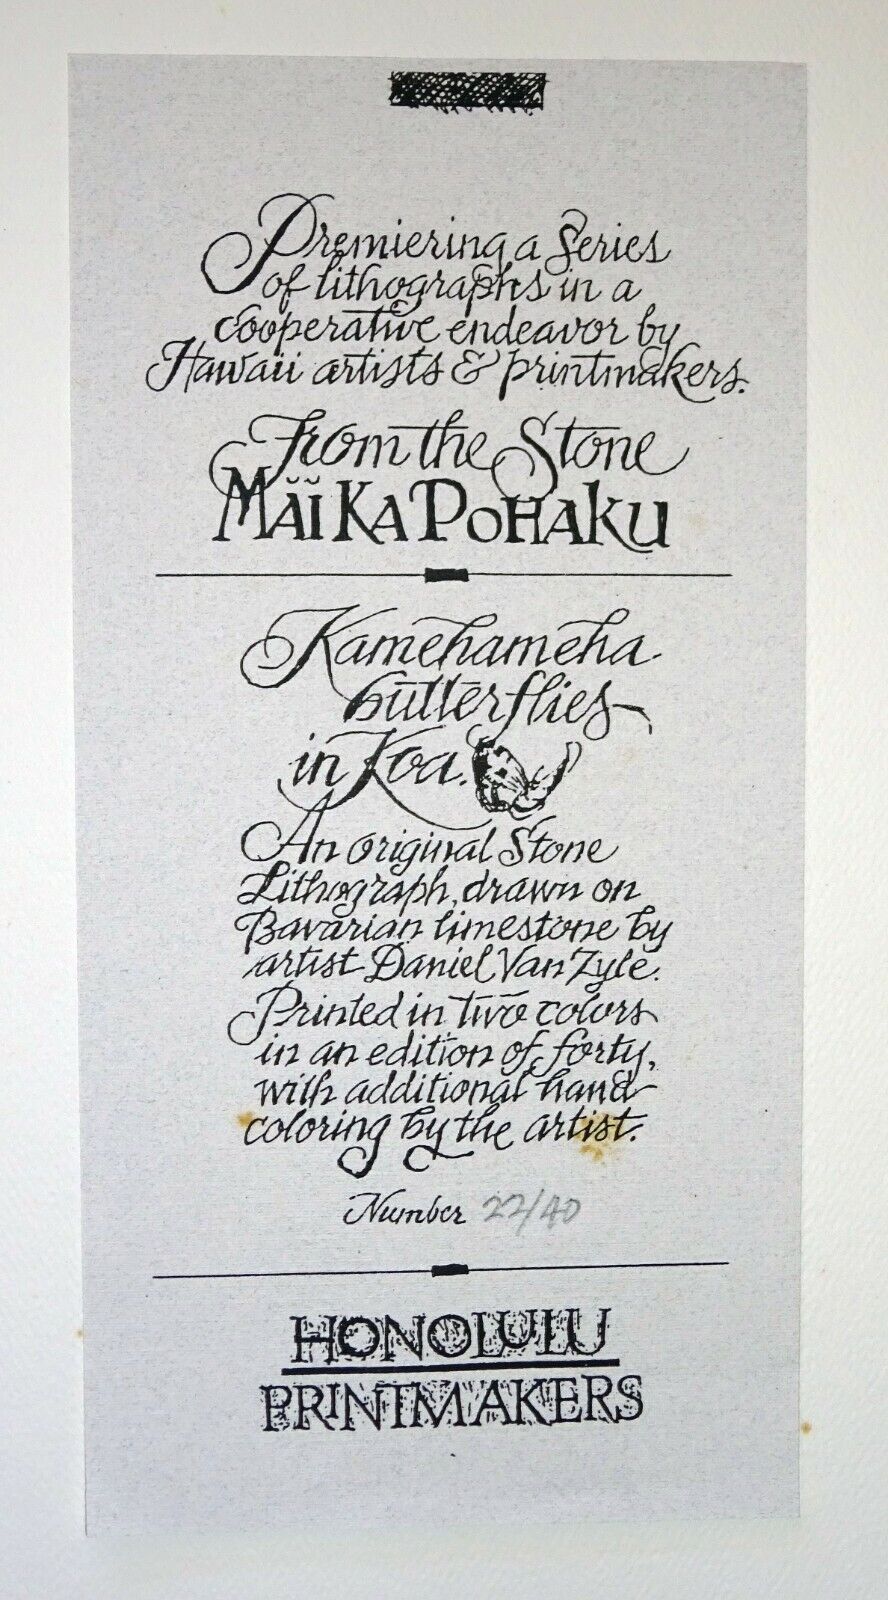 Premiering a Series
of lithographs in a
cooperative endeavor by
Hawaii artists & printmakers.
From the Stone
MĂĬ KA POHAKU
Kamehameha
butterflies
in Koa.
An original Stone
Lithograph, drawn on
Bavarian limestone by
artist Daniel Van Zyle.
Printed in two colors
in an edition of forty,
with additional hand
coloring by the artist.
Number 22/40
HONOLULU
PRINTMAKERS